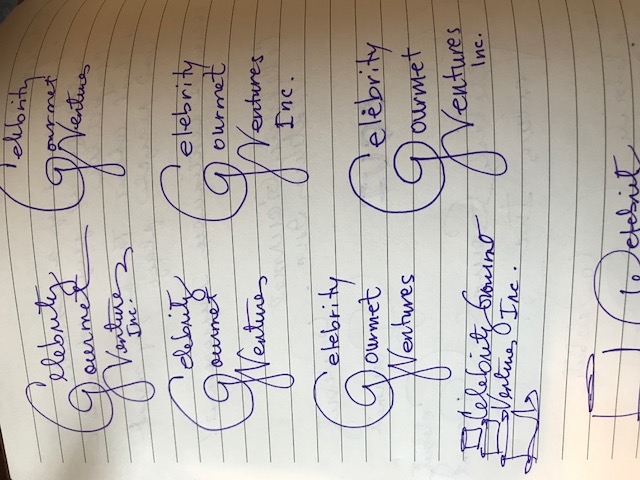 Celebrity
Gourmet
Ventures
Inc.
Celebrity
Gourmet
Ventures
Celebrity
Gourmet
Ventures
Celebrity
Gourmet
Ventures
Inc.
Celebrity
Gourmet
Ventures
Celebrity
Gourmet
Ventures
Inc.
Celebrity
Ventures
Inc.